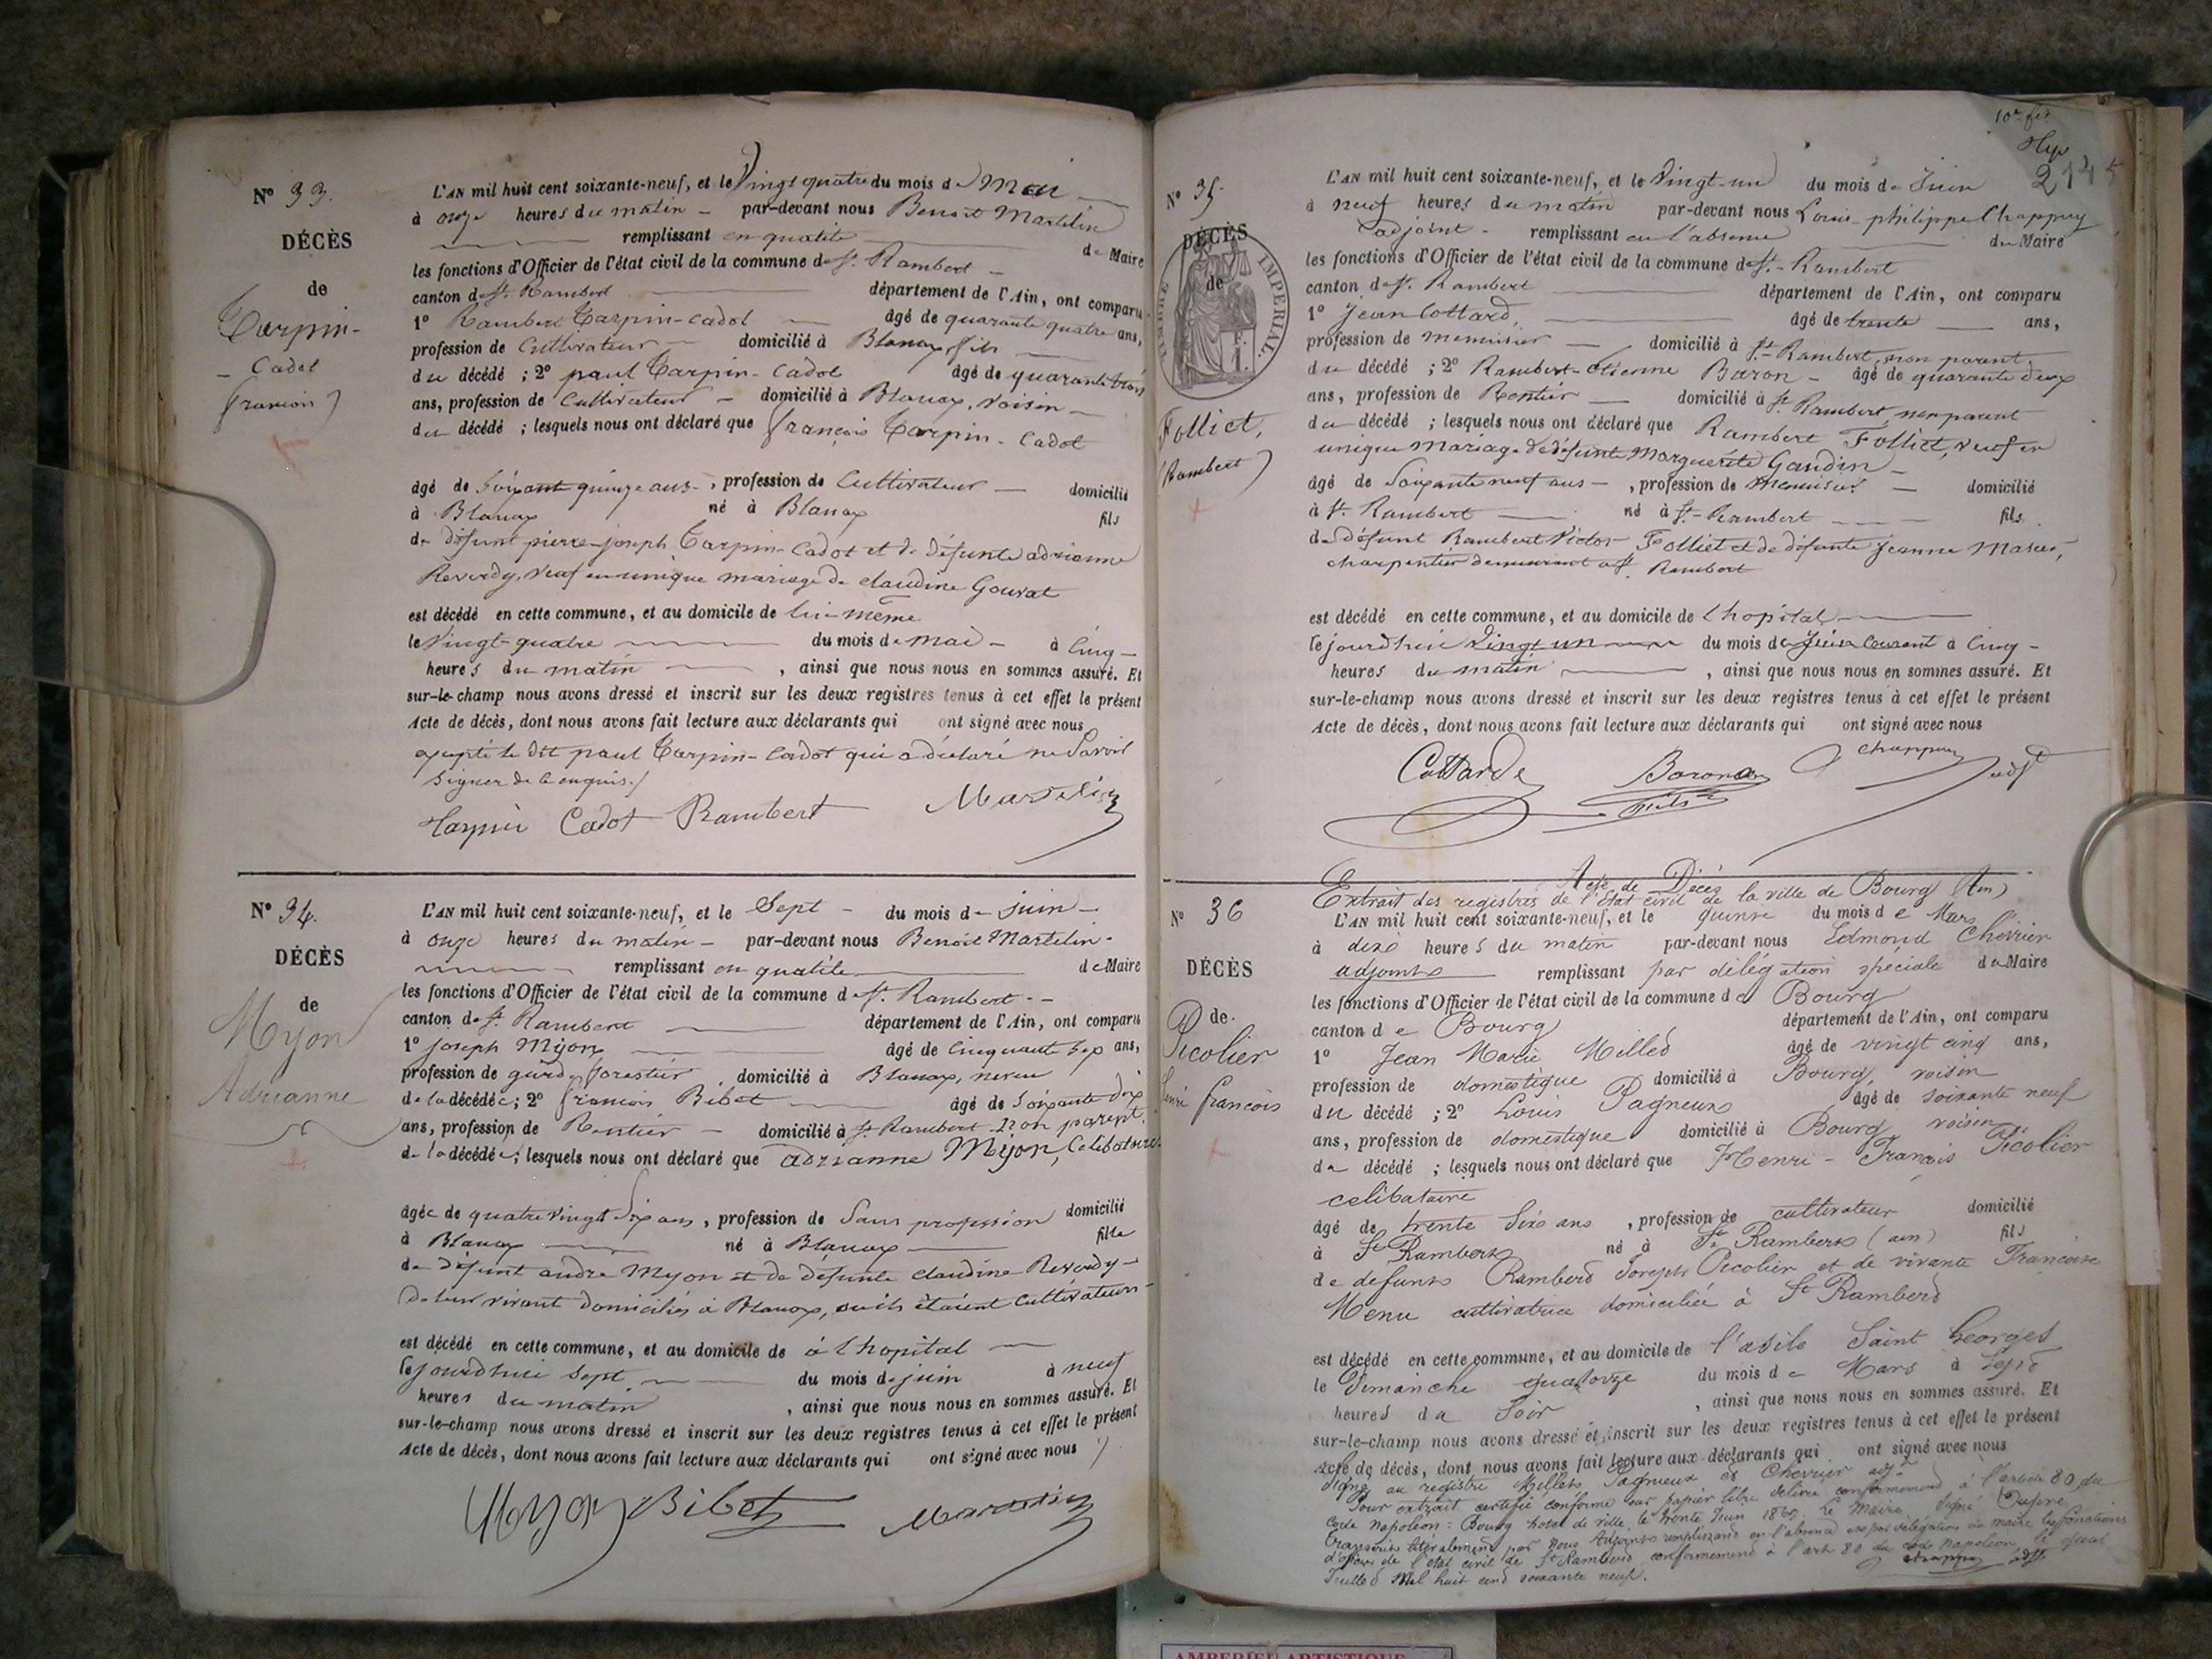 N° 33.
DÉCÈS
de
Carpin-
Cadot
(françois)
L'AN mil huit cent soixante-neuf, et le Vingt quatre du mois de Mai
à onze heures du matin par-devant nous Benoit Martelin
remplissant en qualité de Maire
les fonctions d'Officier de l'état civil de la commune de St. Rambert
canton de St. Rambert département de l'Ain, ont comparu
1° Rambert Carpin-Cadot âgé de quarante quatre ans,
profession de Cultivateur domicilié à Blanaz, fils
du décédé ; 2° paul Carpin-Cadot âgé de quarante trois
ans, profession de Cultivateur domicilié à Blanaz, Voisin
du décédé ; lesquels nous ont déclaré que françois Carpin-Cadot
âgé de Soixante quinze ans, profession de Cultivateur domicilié
à Blanaz né à Blanaz fils
de défunt pierre-joseph Carpin-Cadot et de défunte adrianne
Reverdy, Veuf en unique mariage de claudine Gouvat
est décédé en cette commune, et au domicile de lui-même
le Vingt-quatre du mois de mai à Cinq
heures du matin, ainsi que nous nous en sommes assuré. Et
sur-le-champ nous avons dressé et inscrit sur les deux registres tenus à cet effet le présent
Acte de décès, dont nous avons fait lecture aux déclarants qui ont signé avec nous
excepté le dit paul Carpin-Cadot qui a déclaré ne Savoir
Signer de ce enquis./
Carpin Cadot Rambert Martelin
N° 34.
DÉCÈS
de
Myon
Adrianne
L'AN mil huit cent soixante-neuf, et le Sept du mois de juin
à onze heures du matin par-devant nous Benoit Martelin
remplissant en qualité de Maire
les fonctions d'Officier de l'état civil de la commune de St. Rambert
canton de St. Rambert département de l'Ain, ont comparu
1° joseph Myon âgé de Cinquante Six ans,
profession de garde forestier domicilié à Blanaz, neveu
de la décédée ; 2° françois Bibet âgé de Soixante dix
ans, profession de Rentier domicilié à St. Rambert non parent
de la décédée ; lesquels nous ont déclaré que adrianne Myon, Celibataire
âgée de quatre vingt Six ans, profession de Sans profession domicilié
à Blanaz né à Blanaz fille
de défunt andré Myon et de défunte claudine Reverdy
de leur vivant domiciliés à Blanaz, où ils étaient Cultivateurs
est décédé en cette commune, et au domicile de à l'hopital
le jourd'hui Sept du mois de juin à neuf
heures du matin, ainsi que nous nous en sommes assuré. Et
sur-le-champ nous avons dressé et inscrit sur les deux registres tenus à cet effet le présent
Acte de décès, dont nous avons fait lecture aux déclarants qui ont signé avec nous
Myon Bibet Martelin
214
N° 35.
DÉCÈS
de
TIMBRE IMPÉRIAL.
Folliet,
(Rambert)
L'AN mil huit cent soixante-neuf, et le Vingt-un du mois de Juin
à neuf heures du matin par-devant nous Louis-philippe Chappuy
adjoint remplissant en l'absence du Maire
les fonctions d'Officier de l'état civil de la commune de St.-Rambert
canton de St. Rambert département de l'Ain, ont comparu
1° Jean Cottard, âgé de trente ans,
profession de menuisier domicilié à St.-Rambert, non parent
du décédé ; 2° Rambert-Etienne Baron âgé de quarante deux
ans, profession de Rentier domicilié à St. Rambert non parent
du décédé ; lesquels nous ont déclaré que Rambert Folliet, Veuf en
unique mariage de défunte Marguerite Gaudin
âgé de Soixante neuf ans, profession de menuisier domicilié
à St. Rambert né à St.-Rambert fils
de défunt Rambert Victor Folliet et de défunte Jeanne
charpentier demeurant à St. Rambert
est décédé en cette commune, et au domicile de l'hopital
le jourd'hui Vingt un du mois de Juin Courant à Cinq
heures du matin, ainsi que nous nous en sommes assuré. Et
sur-le-champ nous avons dressé et inscrit sur les deux registres tenus à cet effet le présent
Acte de décès, dont nous avons fait lecture aux déclarants qui ont signé avec nous
Cottard Baron Chappuy adjt
Acte de Décès
Extrait des registres de l'Etat civil de la ville de Bourg (Ain)
N° 36
DÉCÈS
de
Picolier
Henri françois
L'AN mil huit cent soixante-neuf, et le quinze du mois de Mars
à dix heures du matin par-devant nous Edmond Chevrier
adjoint remplissant par délégation spéciale du Maire
les fonctions d'Officier de l'état civil de la commune de Bourg
canton de Bourg département de l'Ain, ont comparu
1° Jean Marie Millet âgé de vingt cinq ans,
profession de domestique domicilié à Bourg, voisin
du décédé ; 2° Louis Pagneux âgé de soixante neuf
ans, profession de domestique domicilié à Bourg voisin
du décédé ; lesquels nous ont déclaré que Henri-François Picolier
celibataire
âgé de trente Six ans, profession de cultivateur domicilié
à St Rambert né à St Rambert (ain) fils
de defunt Rambert Joseph Picolier et de vivante Francoise
Menu cultivatrice domiciliée à St Rambert
est décédé en cette commune, et au domicile de l'asile Saint Georges
le Dimanche quatorze du mois de Mars à Sept
heures du Soir, ainsi que nous nous en sommes assuré. Et
sur-le-champ nous avons dressé et inscrit sur les deux registres tenus à cet effet le présent
Acte de décès, dont nous avons fait lecture aux déclarants qui ont signé avec nous
Signé au registre Millet Pagneux et Chevrier adjt
Pour extrait certifié conforme sur papier libre délivré conformément à l'article 80 du
Code Napoléon : Bourg hotel de ville le trente Juin 1869. Le Maire Signé
transcrit littéralement par nous Adjoint remplissant en l'absence et par délégation du maire les fonctions
d'officier de l'état civil de St Rambert, conformément à l'art 80 du code Napoleon le
Juillet Mil huit cent soixante neuf. Chappuy adjt
AMBERIEU ARTISTIQUE